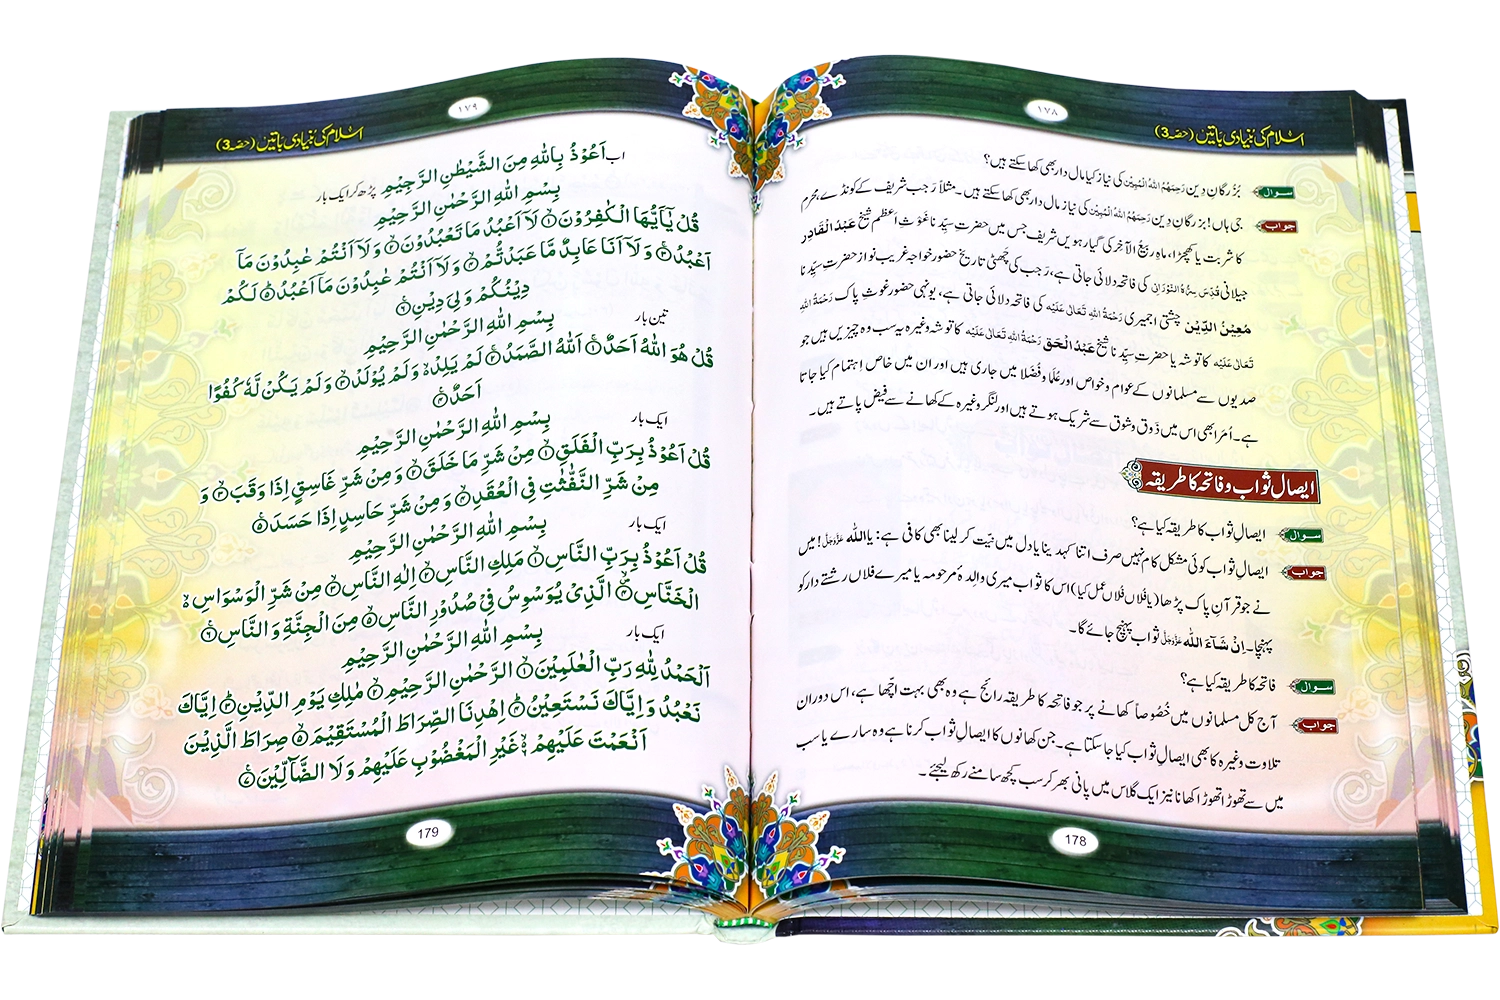 ۱۷۸
اسلام کی بنیادی باتیں (حصّہ 3)
سوال بُزرگانِ دین رَحِمَهُمُ اللهُ الْمُبِيْن کی نیاز کیا مال دار بھی کھا سکتے ہیں؟
جواب جی ہاں! بزرگانِ دین رَحِمَهُمُ اللهُ الْمُبِيْن کی نیاز مال دار بھی کھا سکتے ہیں۔ مثلاً رَجب شریف کے کونڈے، محرم
کا شربت یا کھچڑا، ماہِ ربیعُ الآخر کی گیارہویں شریف جس میں حضرتِ سیِّدنا غوثِ اعظم شیخ عبدُ الْقادِر
جیلانی قُدِّسَ سِرُّهُ النُّوْرَانِی کی فاتحہ دلائی جاتی ہے، رَجب کی چھٹی تاریخ حضور خواجہ غریب نواز حضرت سیِّدنا
مُعِیْنُ الدِّیْن چشتی اجمیری رَحْمَةُ اللهِ تَعَالٰی عَلَيْه کی فاتحہ دلائی جاتی ہے، یونہی حضور غوثِ پاک رَحْمَةُ اللهِ
تَعَالٰی عَلَيْه کا توشہ یا حضرتِ سیِّدنا شیخ عبدُ الْحَق رَحْمَةُ اللهِ تَعَالٰی عَلَيْه کا توشہ وغیرہ یہ سب وہ چیزیں ہیں جو
صدیوں سے مسلمانوں کے عوام و خواص اور عُلَما و فُضَلا میں جاری ہیں اور ان میں خاص اِہتمام کیا جاتا
ہے۔ اُمَرا بھی اس میں ذوق و شوق سے شریک ہوتے ہیں اور لنگر وغیرہ کے کھانے سے فیض پاتے ہیں۔
ایصال ثواب و فاتحہ کا طریقہ
سوال ایصالِ ثواب کا طریقہ کیا ہے؟
جواب ایصالِ ثواب کوئی مشکل کام نہیں صرف اتنا کہہ دینا یا دل میں نیّت کر لینا بھی کافی ہے: یا اللّٰه عَزَّوَجَلَّ! میں
نے جو قرآنِ پاک پڑھا (یا فلاں فلاں عمل کیا) اس کا ثواب میری والدۂ مرحومہ یا میرے فلاں رشتے دار کو
پہنچا۔ اِنْ شَآءَ اللّٰه عَزَّوَجَلَّ ثواب پہنچ جائے گا۔
سوال فاتحہ کا طریقہ کیا ہے؟
جواب آج کل مسلمانوں میں خُصُوصاً کھانے پر جو فاتحہ کا طریقہ رائج ہے وہ بھی بہت اچھا ہے، اس دوران
تلاوت وغیرہ کا بھی ایصالِ ثواب کیا جا سکتا ہے۔ جن کھانوں کا ایصالِ ثواب کرنا ہے وہ سارے یا سب
میں سے تھوڑا تھوڑا کھانا نیز ایک گلاس میں پانی بھر کر سب کچھ سامنے رکھ لیجئے۔
178
۱۷۹
اسلام کی بنیادی باتیں (حصّہ 3)
اب اَعُوْذُ بِاللّٰهِ مِنَ الشَّيْطٰنِ الرَّجِيْمِ پڑھ کر ایک بار
بِسْمِ اللّٰهِ الرَّحْمٰنِ الرَّحِيْمِ
قُلْ يٰۤاَيُّهَا الْكٰفِرُوْنَ ۙ۝۱ لَاۤ اَعْبُدُ مَا تَعْبُدُوْنَ ۙ۝۲ وَلَاۤ اَنْتُمْ عٰبِدُوْنَ مَاۤ
اَعْبُدُ ۚ۝۳ وَلَاۤ اَنَا عَابِدٌ مَّا عَبَدْتُّمْ ۙ۝۴ وَلَاۤ اَنْتُمْ عٰبِدُوْنَ مَاۤ اَعْبُدُ ؕ۝۵ لَكُمْ
دِيْنُكُمْ وَلِيَ دِيْنِ ۠۝۶
تین بار بِسْمِ اللّٰهِ الرَّحْمٰنِ الرَّحِيْمِ
قُلْ هُوَ اللّٰهُ اَحَدٌ ۚ۝۱ اَللّٰهُ الصَّمَدُ ۚ۝۲ لَمْ يَلِدْ ۙ۬ وَلَمْ يُوْلَدْ ۙ۝۳ وَلَمْ يَكُنْ لَّهٗ كُفُوًا
اَحَدٌ ۠۝۴
ایک بار بِسْمِ اللّٰهِ الرَّحْمٰنِ الرَّحِيْمِ
قُلْ اَعُوْذُ بِرَبِّ الْفَلَقِ ۙ۝۱ مِنْ شَرِّ مَا خَلَقَ ۙ۝۲ وَمِنْ شَرِّ غَاسِقٍ اِذَا وَقَبَ ۙ۝۳ وَ
مِنْ شَرِّ النَّفّٰثٰتِ فِى الْعُقَدِ ۙ۝۴ وَمِنْ شَرِّ حَاسِدٍ اِذَا حَسَدَ ۠۝۵
ایک بار بِسْمِ اللّٰهِ الرَّحْمٰنِ الرَّحِيْمِ
قُلْ اَعُوْذُ بِرَبِّ النَّاسِ ۙ۝۱ مَلِكِ النَّاسِ ۙ۝۲ اِلٰهِ النَّاسِ ۙ۝۳ مِنْ شَرِّ الْوَسْوَاسِ ۙ۬
الْخَنَّاسِ ۪ۙ۝۴ الَّذِىْ يُوَسْوِسُ فِىْ صُدُوْرِ النَّاسِ ۙ۝۵ مِنَ الْجِنَّةِ وَالنَّاسِ ۠۝۶
ایک بار بِسْمِ اللّٰهِ الرَّحْمٰنِ الرَّحِيْمِ
اَلْحَمْدُ لِلّٰهِ رَبِّ الْعٰلَمِيْنَ ۙ۝۱ الرَّحْمٰنِ الرَّحِيْمِ ۙ۝۲ مٰلِكِ يَوْمِ الدِّيْنِ ؕ۝۳ اِيَّاكَ
نَعْبُدُ وَاِيَّاكَ نَسْتَعِيْنُ ؕ۝۴ اِهْدِنَا الصِّرَاطَ الْمُسْتَقِيْمَ ۙ۝۵ صِرَاطَ الَّذِيْنَ
اَنْعَمْتَ عَلَيْهِمْ ۙ۬۝۶ غَيْرِ الْمَغْضُوْبِ عَلَيْهِمْ وَلَا الضَّآلِّيْنَ ۠۝۷
179